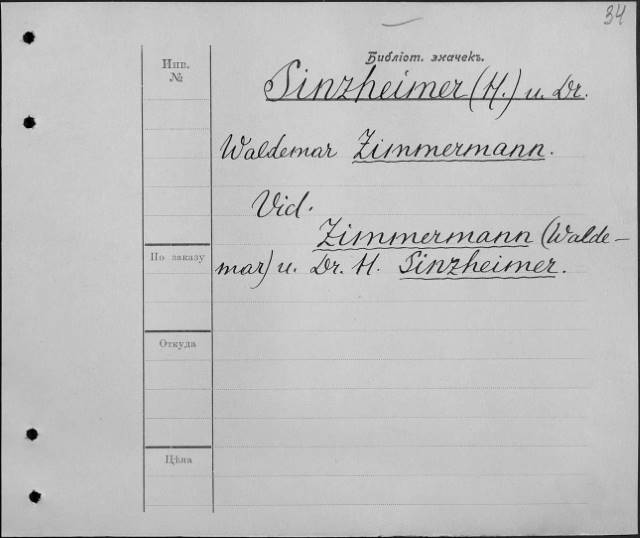 34
Библіот. значекъ.
Инв.
№
Sinzheimer (H.) u. Dr.
Waldemar Zimmermann.
Vid.
Zimmermann (Walde-
mar) u. Dr. H. Sinzheimer.
По заказу
Откуда
Цѣна